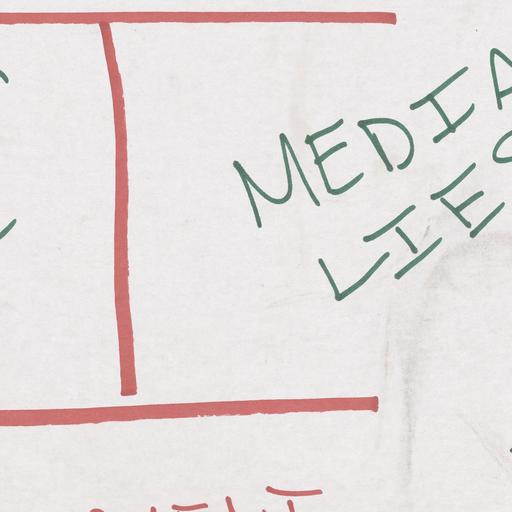 MEDIA
LIES